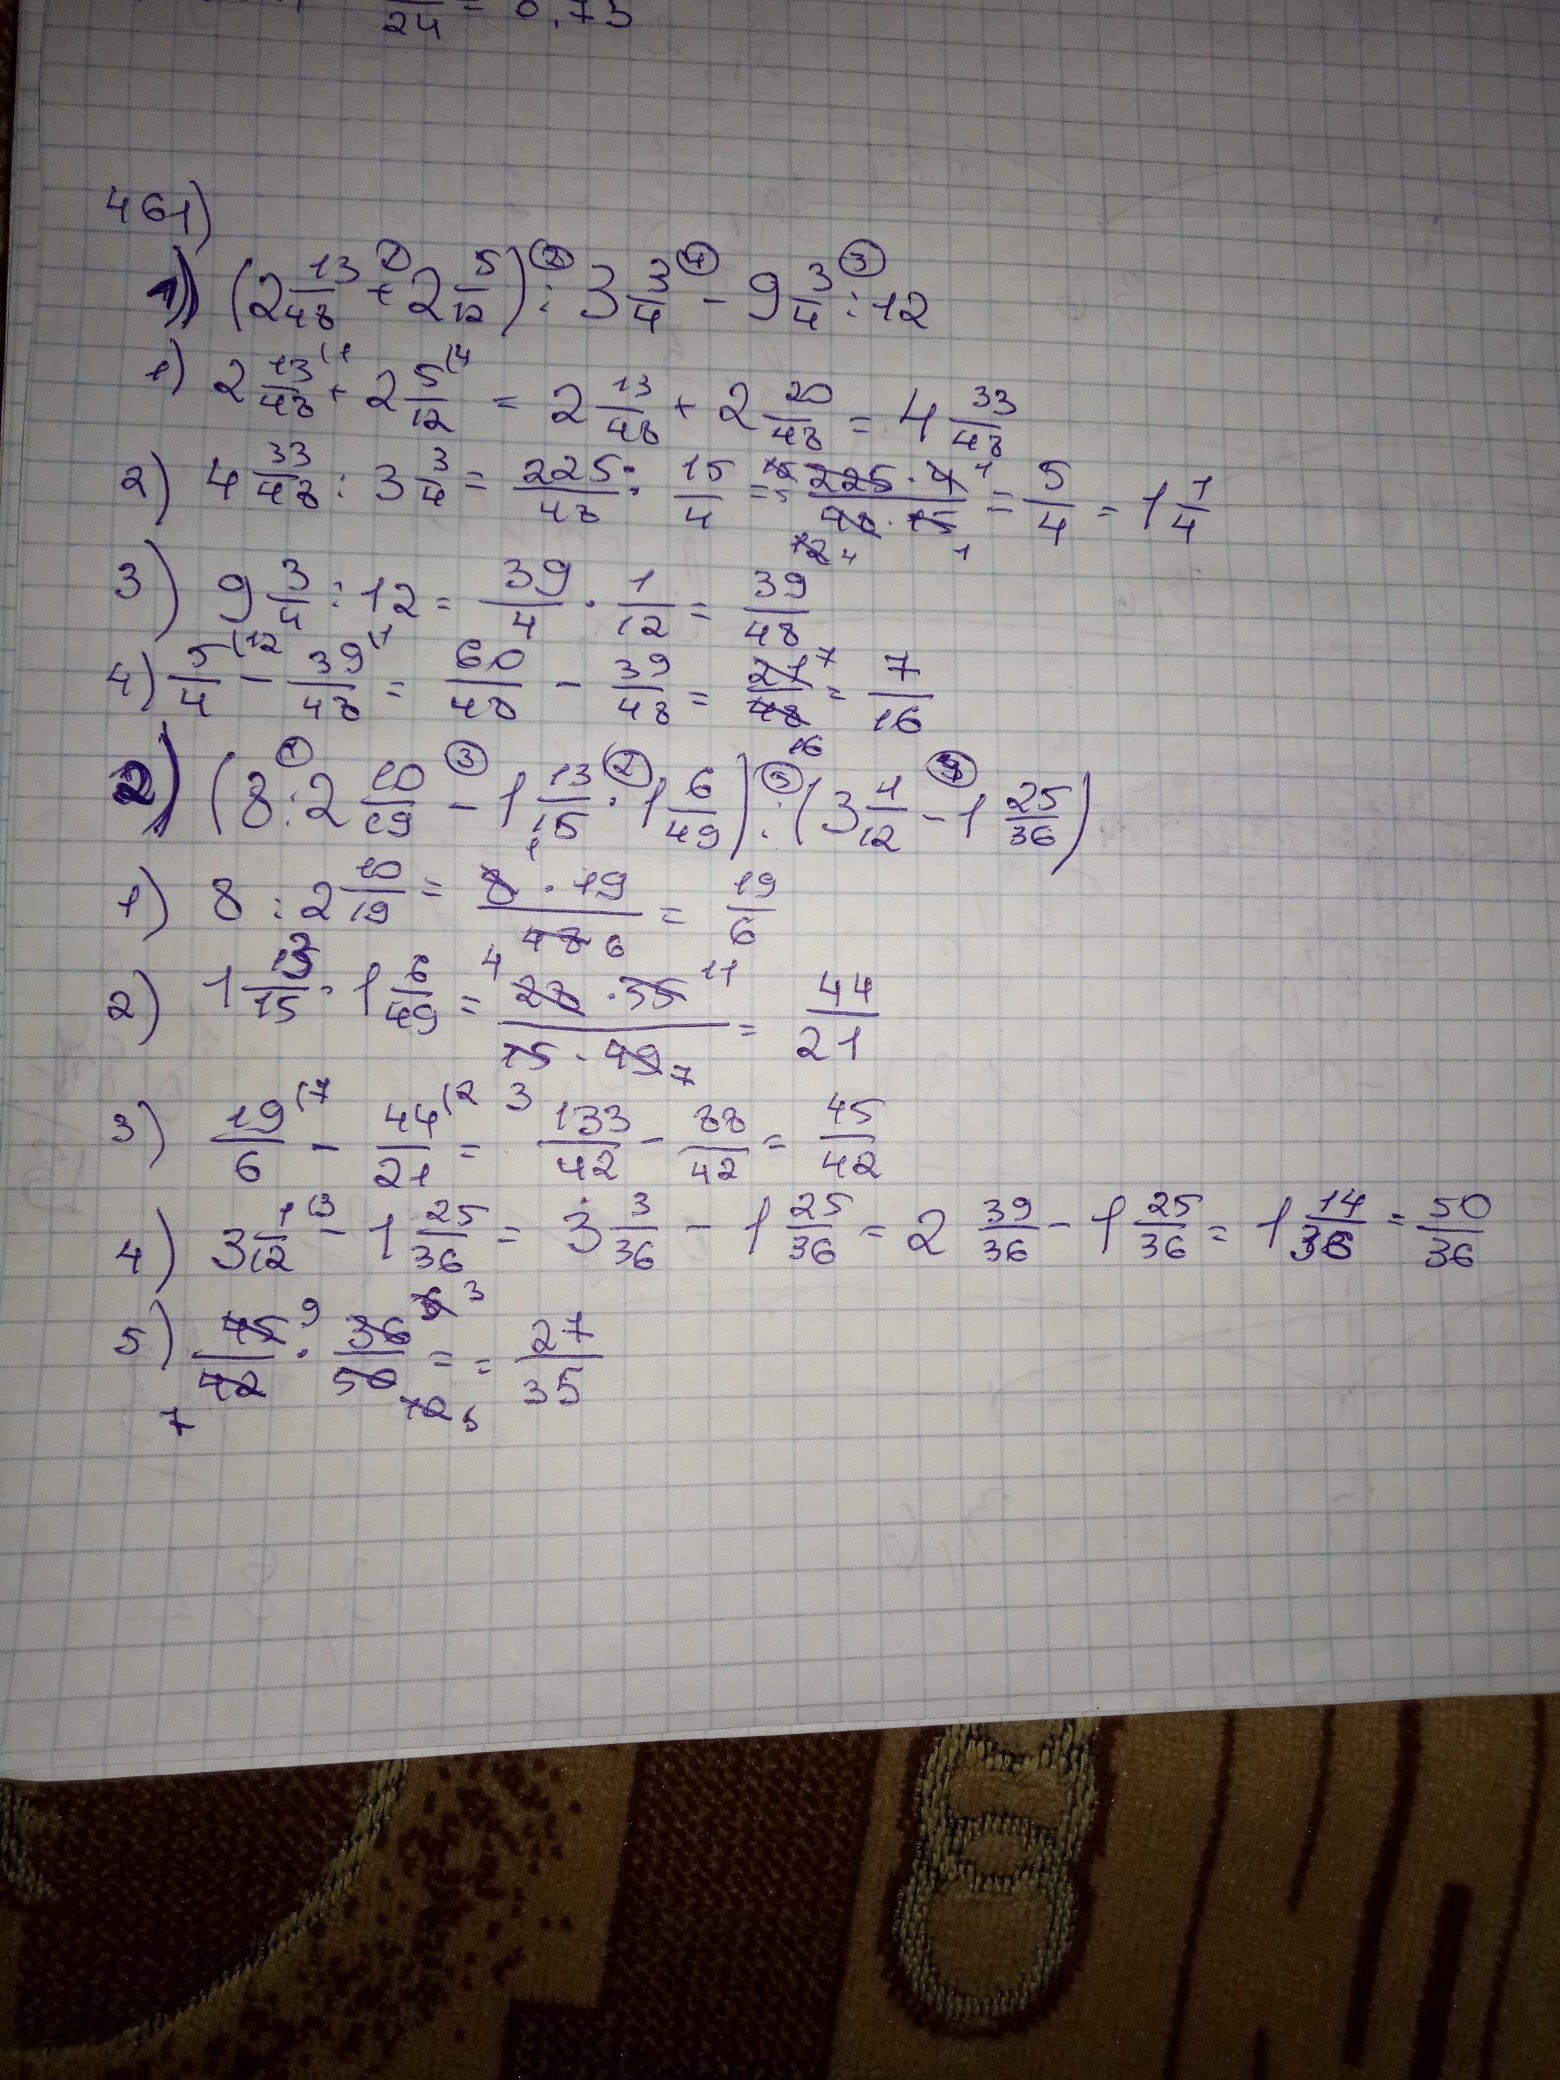 24 = 0,75
461)
1) (2 13/48 + 2 5/12) : 3 3/4 - 9 3/4 : 12
1) 2 13/48 + 2 5/12 = 2 13/48 + 2 20/48 = 4 33/48
2) 4 33/48 : 3 3/4 = 225/48 : 15/4 = 225 · 4 / 48 · 15 = 5/4 = 1 1/4
3) 9 3/4 : 12 = 39/4 · 1/12 = 39/48
4) 5/4 - 39/48 = 60/48 - 39/48 = 21/48 = 7/16
2) (8 : 2 10/19 - 1 13/15 · 1 6/49) : (3 1/12 - 1 25/36)
1) 8 : 2 10/19 = 8 · 19 / 48 6 = 19/6
2) 1 13/15 · 1 6/49 = 28 · 55 / 15 · 49 = 44/21
3) 19/6 - 44/21 = 133/42 - 88/42 = 45/42
4) 3 1/12 - 1 25/36 = 3 3/36 - 1 25/36 = 2 39/36 - 1 25/36 = 1 14/36 = 50/36
5) 45/42 · 36/50 = = 27/35